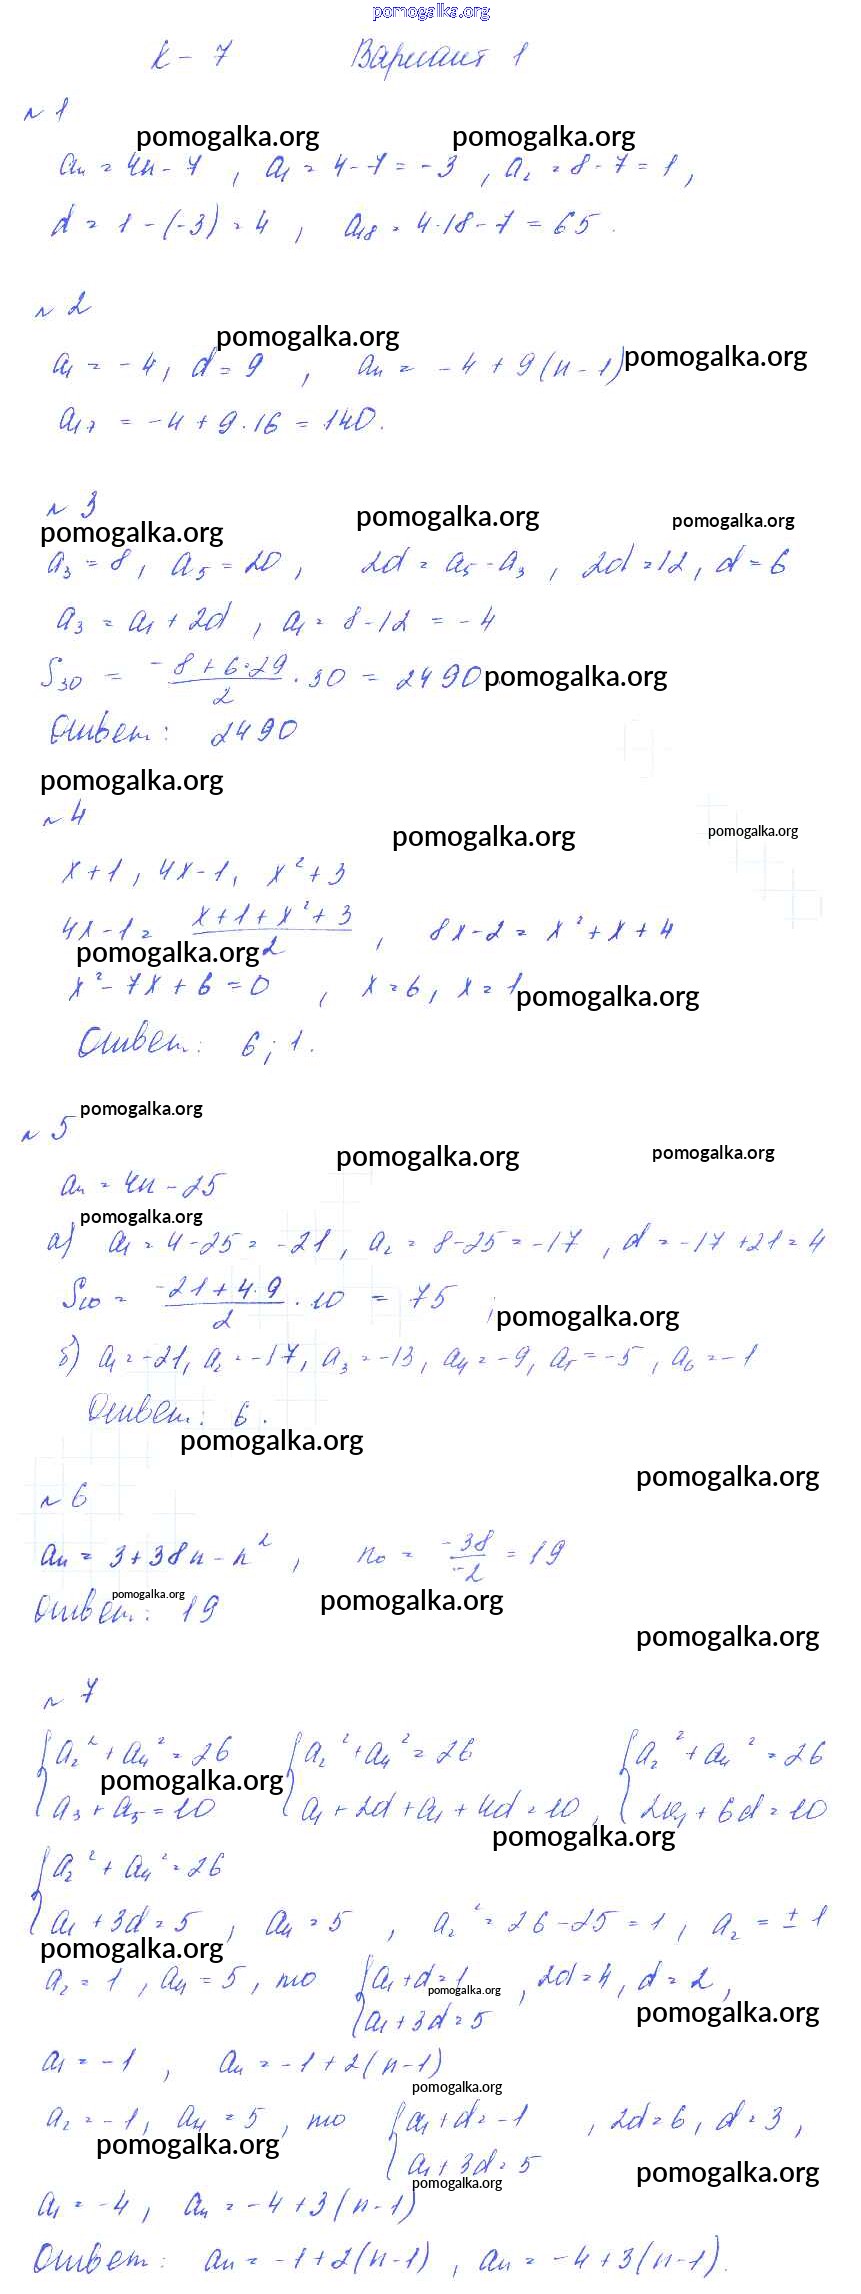 pomogalka.org
К - 7 Вариант 1
№ 1
pomogalka.org pomogalka.org
aₙ = 4n - 7 , a₁ = 4 - 7 = -3 , a₂ = 8 - 7 = 1 ,
d = 1 - (-3) = 4 , a₁₈ = 4·18 - 7 = 65 .
№ 2
pomogalka.org
a₁ = -4 , d = 9 , aₙ = -4 + 9(n - 1) pomogalka.org
a₁₇ = -4 + 9·16 = 140.
№ 3
pomogalka.org pomogalka.org pomogalka.org
a₃ = 8 , a₅ = 20 , 2d = a₅ - a₃ , 2d = 12 , d = 6
a₃ = a₁ + 2d , a₁ = 8 - 12 = -4
S₃₀ = (-8 + 6·29)/2 · 30 = 2490 pomogalka.org
Ответ: 2490
pomogalka.org
№ 4
pomogalka.org pomogalka.org
x + 1 , 4x - 1 , x² + 3
4x - 1 = (x + 1 + x² + 3)/2 , 8x - 2 = x² + x + 4
pomogalka.org
x² - 7x + 6 = 0 , x = 6 , x = 1 pomogalka.org
Ответ: 6 ; 1.
pomogalka.org
№ 5
pomogalka.org pomogalka.org
aₙ = 4n - 25
pomogalka.org
а) a₁ = 4 - 25 = -21 , a₂ = 8 - 25 = -17 , d = -17 + 21 = 4
S₁₀ = (-21 + 4·9)/2 · 10 = 75 ; pomogalka.org
б) a₁ = -21 , a₂ = -17 , a₃ = -13 , a₄ = -9 , a₅ = -5 , a₆ = -1
Ответ: 6 .
pomogalka.org
pomogalka.org
№ 6
aₙ = 3 + 38n - n² , n₀ = -38/-2 = 19
pomogalka.org pomogalka.org
Ответ: 19
pomogalka.org
№ 7
{ a₂² + a₄² = 26 { a₂² + a₄² = 26 { a₂² + a₄² = 26
pomogalka.org
a₃ + a₅ = 10 a₁ + 2d + a₁ + 4d = 10 , 2a₁ + 6d = 10
pomogalka.org
{ a₂² + a₄² = 26
a₁ + 3d = 5 , a₄ = 5 , a₂² = 26 - 25 = 1 , a₂ = ± 1
pomogalka.org
a₂ = 1 , a₄ = 5 , то { a₁ + d = 1 , 2d = 4 , d = 2 ,
pomogalka.org
a₁ + 3d = 5 pomogalka.org
a₁ = -1 , aₙ = -1 + 2(n - 1)
pomogalka.org
a₂ = -1 , a₄ = 5 , то { a₁ + d = -1 , 2d = 6 , d = 3 ,
pomogalka.org
a₁ + 3d = 5 pomogalka.org
pomogalka.org
a₁ = -4 , aₙ = -4 + 3(n - 1)
Ответ: aₙ = -1 + 2(n - 1) , aₙ = -4 + 3(n - 1).